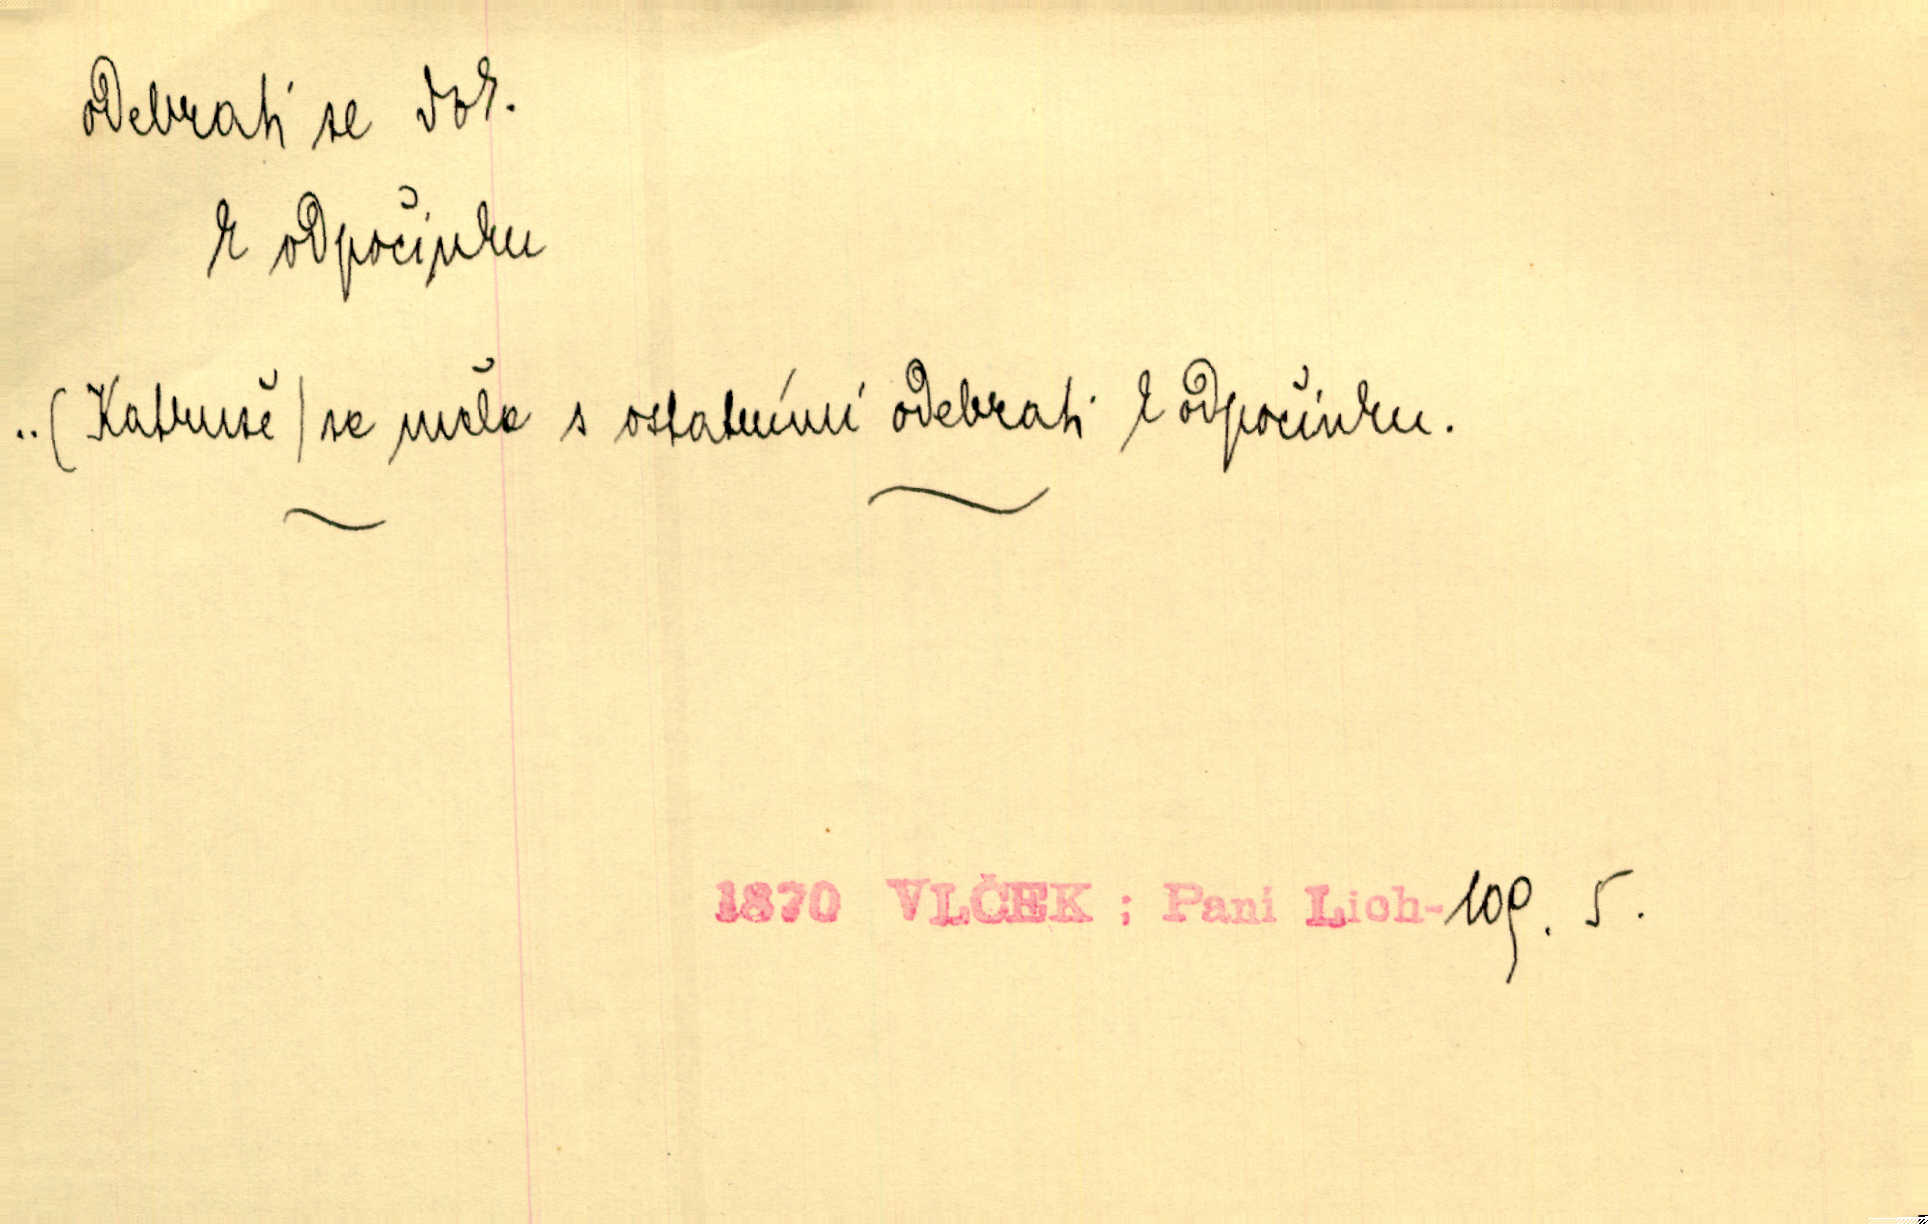 odebrati se dok.
k odpočinku
..(Katruše) se měla s ostatními odebrati k odpočinku.
1870 VLČEK ; Pani Lich- 109. 5.